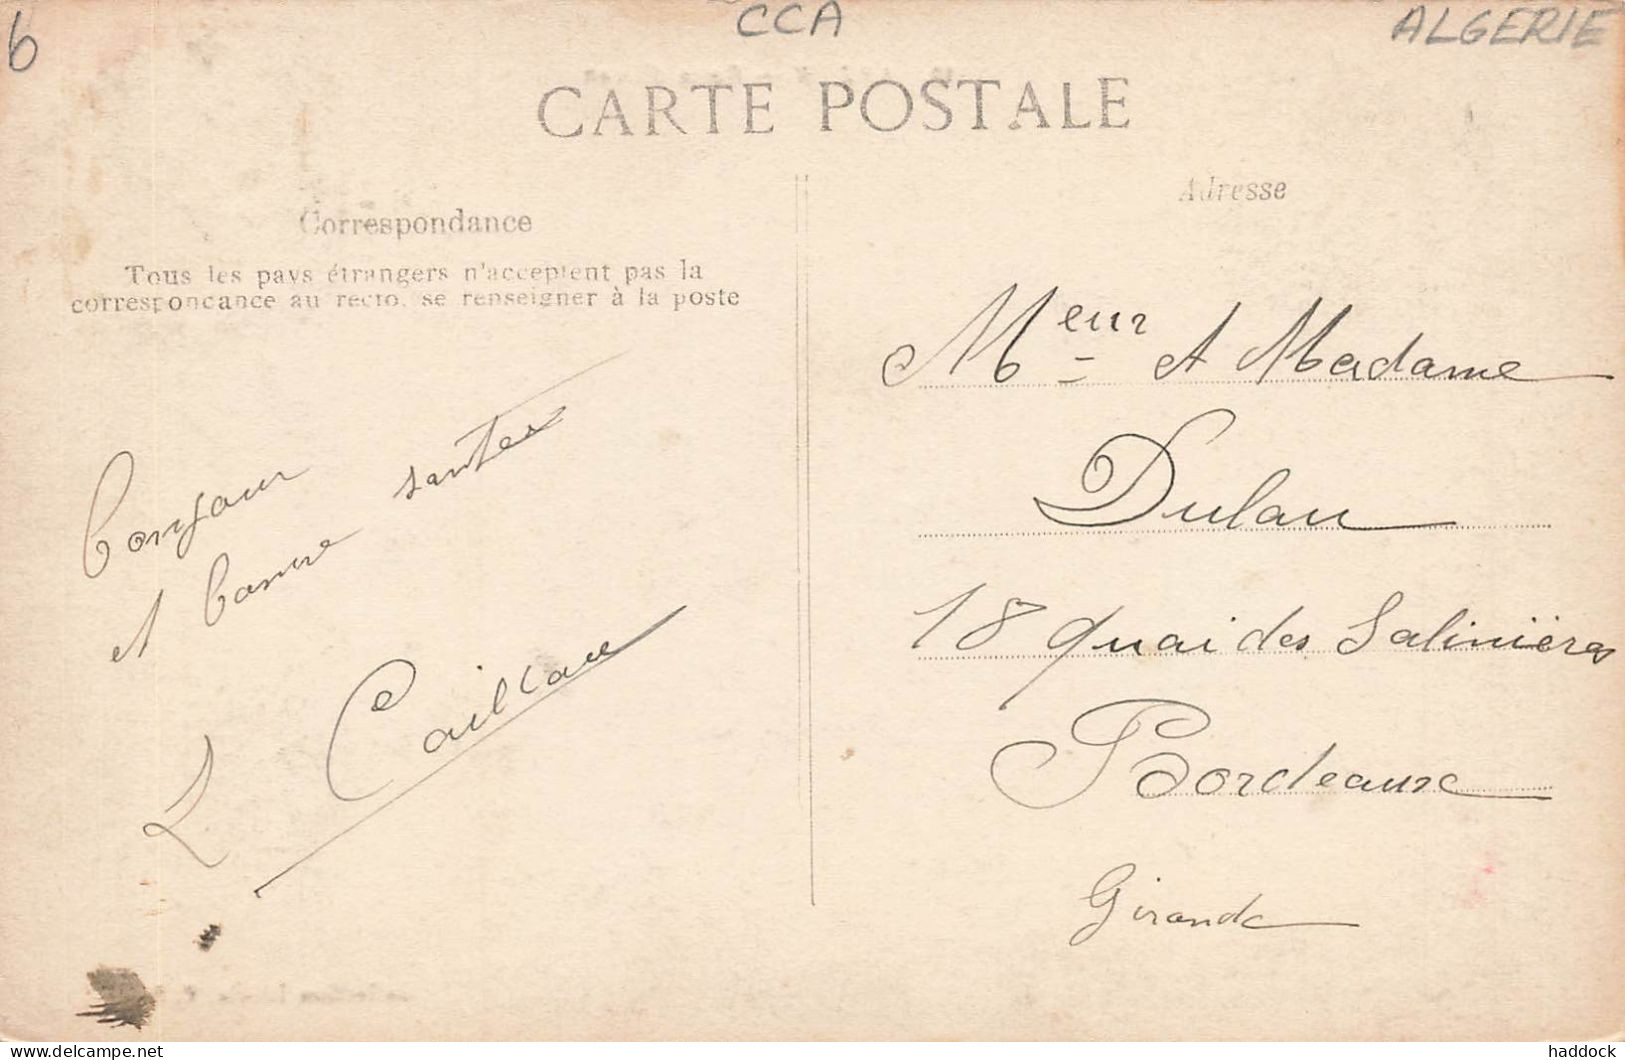 6
CCA
ALGERIE
CARTE POSTALE
Correspondance
Tous les pays étrangers n'acceptent pas la
correspondance au recto, se renseigner à la poste
Adresse
Bonjour
et bonne santes
L Caillau
Meur et Madame
Dulau
18 quai des Salinières
Bordeaux
Gironde
delcampe.net
haddock